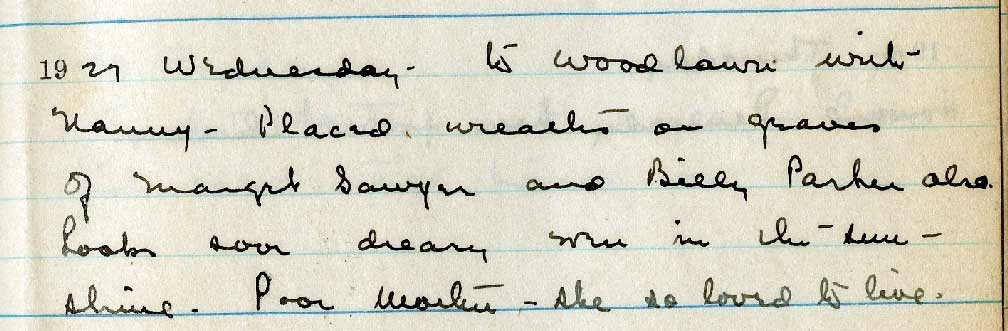 1927 Wednesday - to Woodlawn with
Nanny - Placed wreaths on graves
of Margt Sawyer and Billy Parker also.
Looks soo dreary even in the sun-
shine. Poor - she so loved to live.